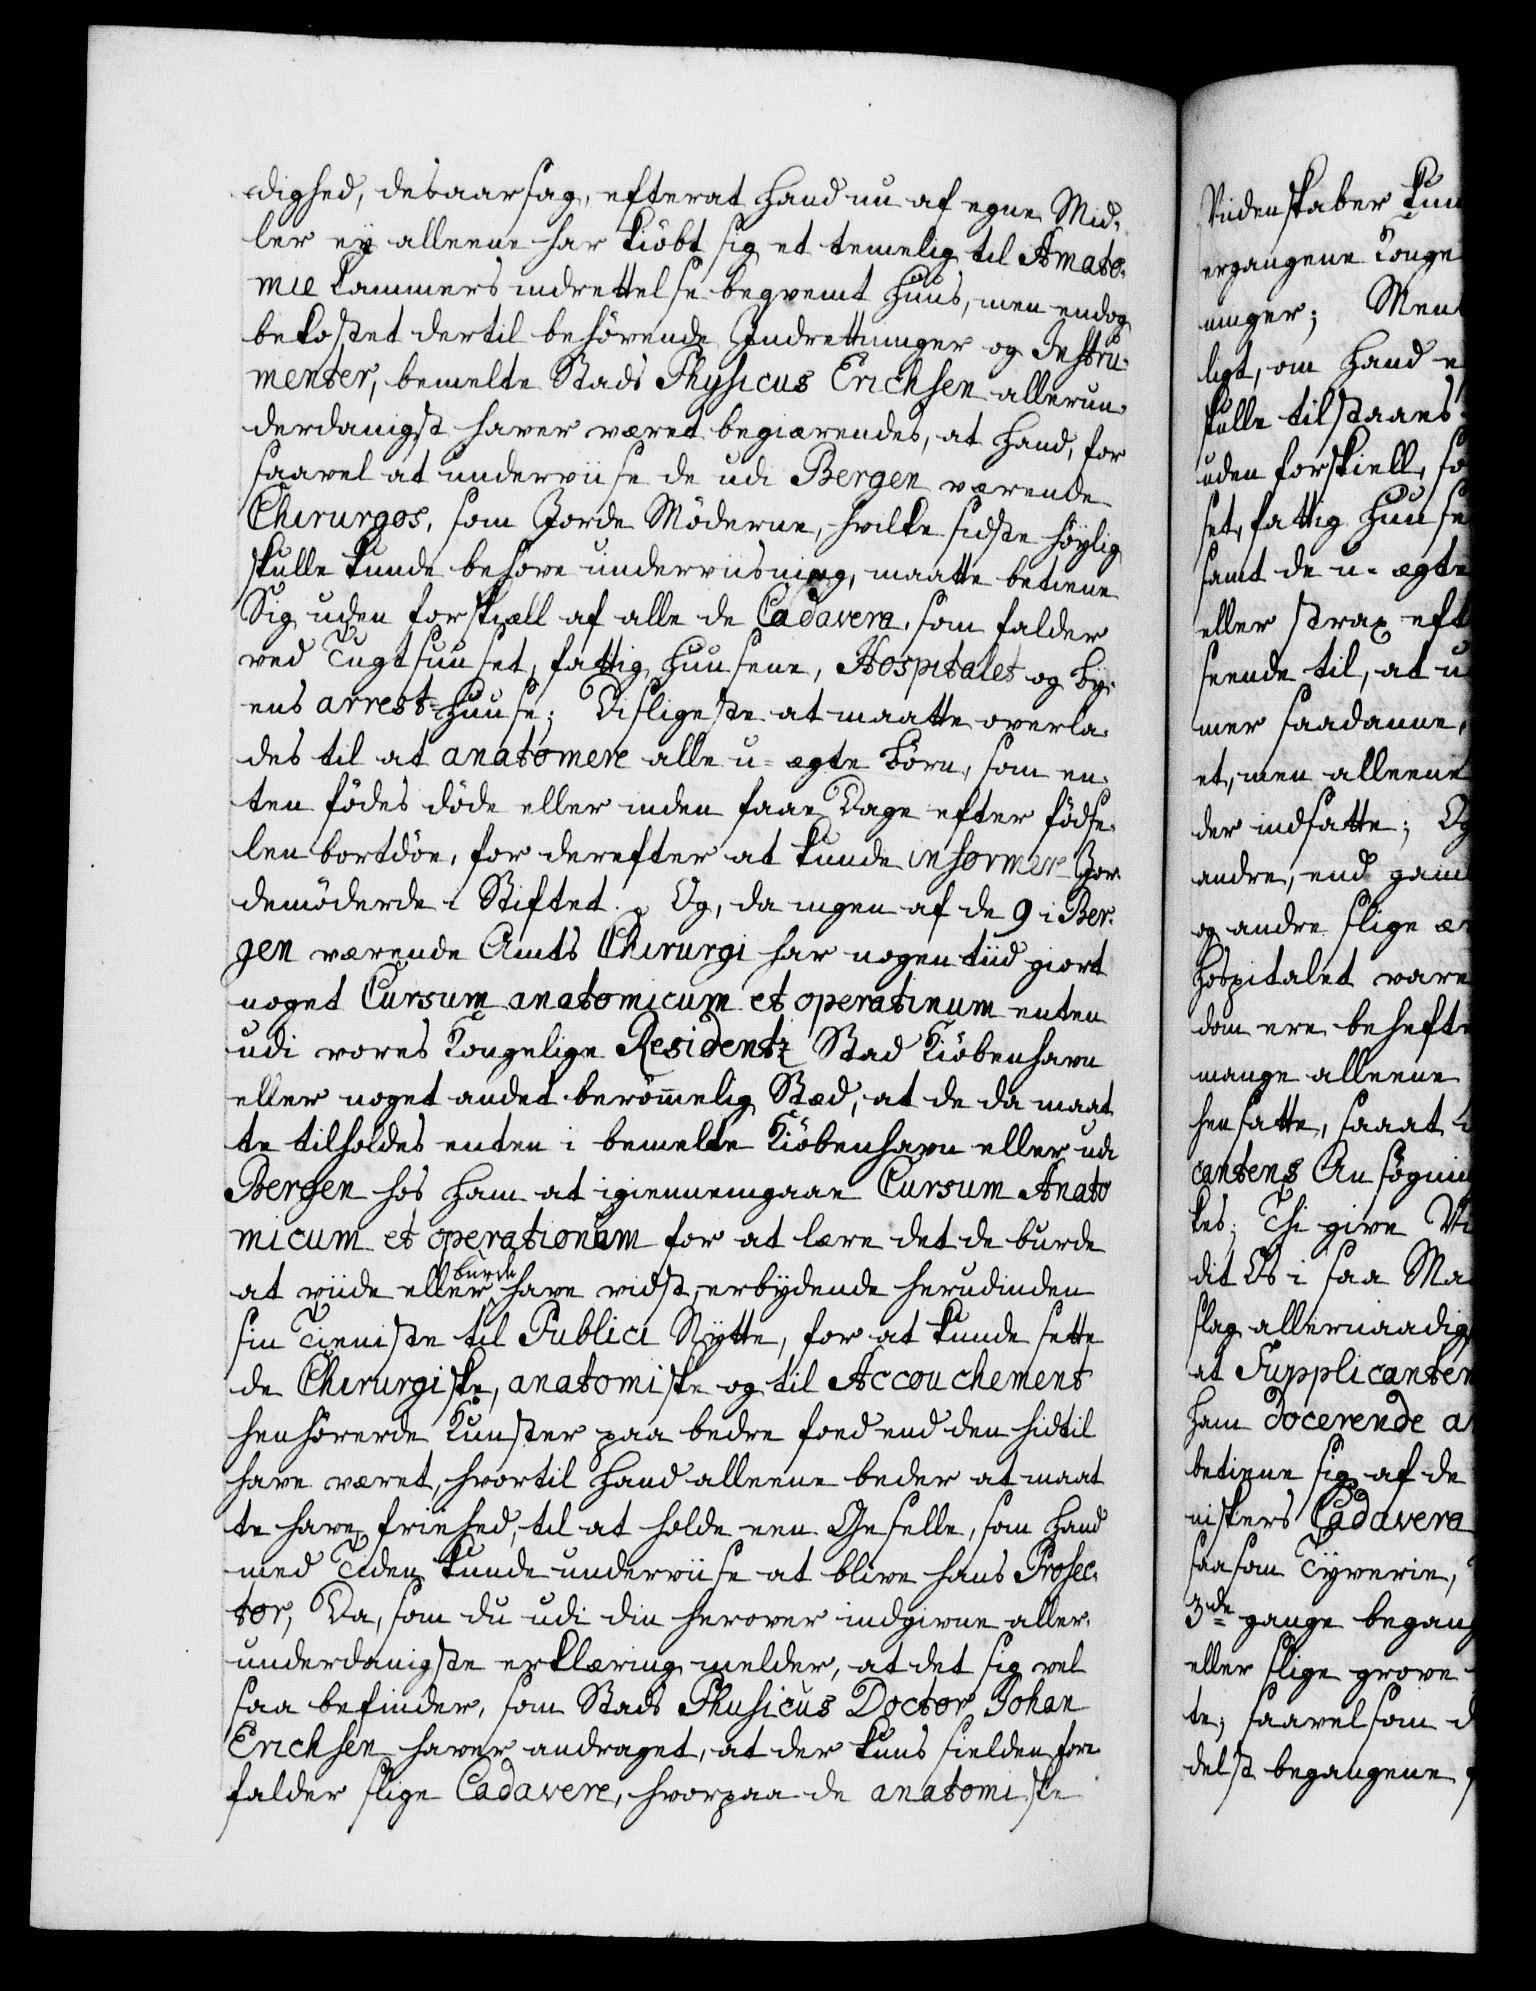 dighed, desaarsag, efterat hand nu af egne Mid-
ler ey alleene har kiöbt sig et temelig til Anato-
mie Cammers indrettelse beqvemt Huus, men endog
bekostet dertil behörende Indretninger og Instru-
menter, bemelte Stads Physicus Erichsen allerun-
derdanigst haver været begiærendes, at hand, for
saavel at underviise de udi Bergen værende
Chirurgos, som Jorde Möderne, hvilke sidste höylig
skulle kunde behöve underviisning, maatte betiene
Sig uden forskiæll af alle de Cadavera, som falder
ved Tugthuuset, fattig Huusene, Hospitalet og By-
ens arrest-Huuse; Disligeste at maatte overla-
des til at anatomere alle u-ægte börn, som en-
ten födes döde eller inden faae Dage efter födse-
len bortdöe, for derefter at kunde informere Jor-
demöderde i Stiftet. Og, da ingen af de 9 i Ber-
gen værende Amts Chirurgi har nogen tiid giort
noget Cursum anatomicum et operatinum enten
udi vores Kongelige Residentz Stad Kiöbenhavn
eller noget andet berömmelig Stæd, at de da maat
te tilholdes enten i bemelte Kiöbenhavn eller udi
Bergen hos ham at igiennemgaae Cursum Anato
micum et operationum for at lære det de burde
at viide eller burde have vidst, erbydende herudinden
sin Tieniste til Publici Nytte, for at kunde sette
de Chirurgiske, anatomiske og til Accouchement
henhörerde Kunster paa bedre foed end den hidtil
have været, hvortil Hand alleene beder at maat
te have friehed, til at holde een Geselle, som Hand
med Tiden kunde underviise at blive hans Prosec-
tor, Da, som du udi din herover indgivne aller-
underdanigste erklæring melder, at det sig vel
saa befinder, som Stads Phusicus Doctor Johan
Erichsen haver andraget, at der kuns sielden fore-
falder slige Cadavere, hvorpaa de anatomiske
Viidenskaber kun
ergangene Konge
ninger; Men
ligt, om hand e
skulle tilstaaes
uden forskiell, so
set, fattig Huuse
samt de u-ægte
eller strax eft
seende til, at u
mer saadanne,
et, men alleene
der indsatte; Og
andre, end gam
og andre slige æ
Hospitalet være
dom ere behefte
mange alleene
hensatte, saaat
cantens Ansögnin
kes; Thi give Vi
dit Os i saa Ma
slag allernaadig
at Supplicanten
ham docerende a
betiene sig af de
niskers Cadavera
saasom Tyverie,
3de gange begang
eller slige grove
te; saavelsom d
delst begangene